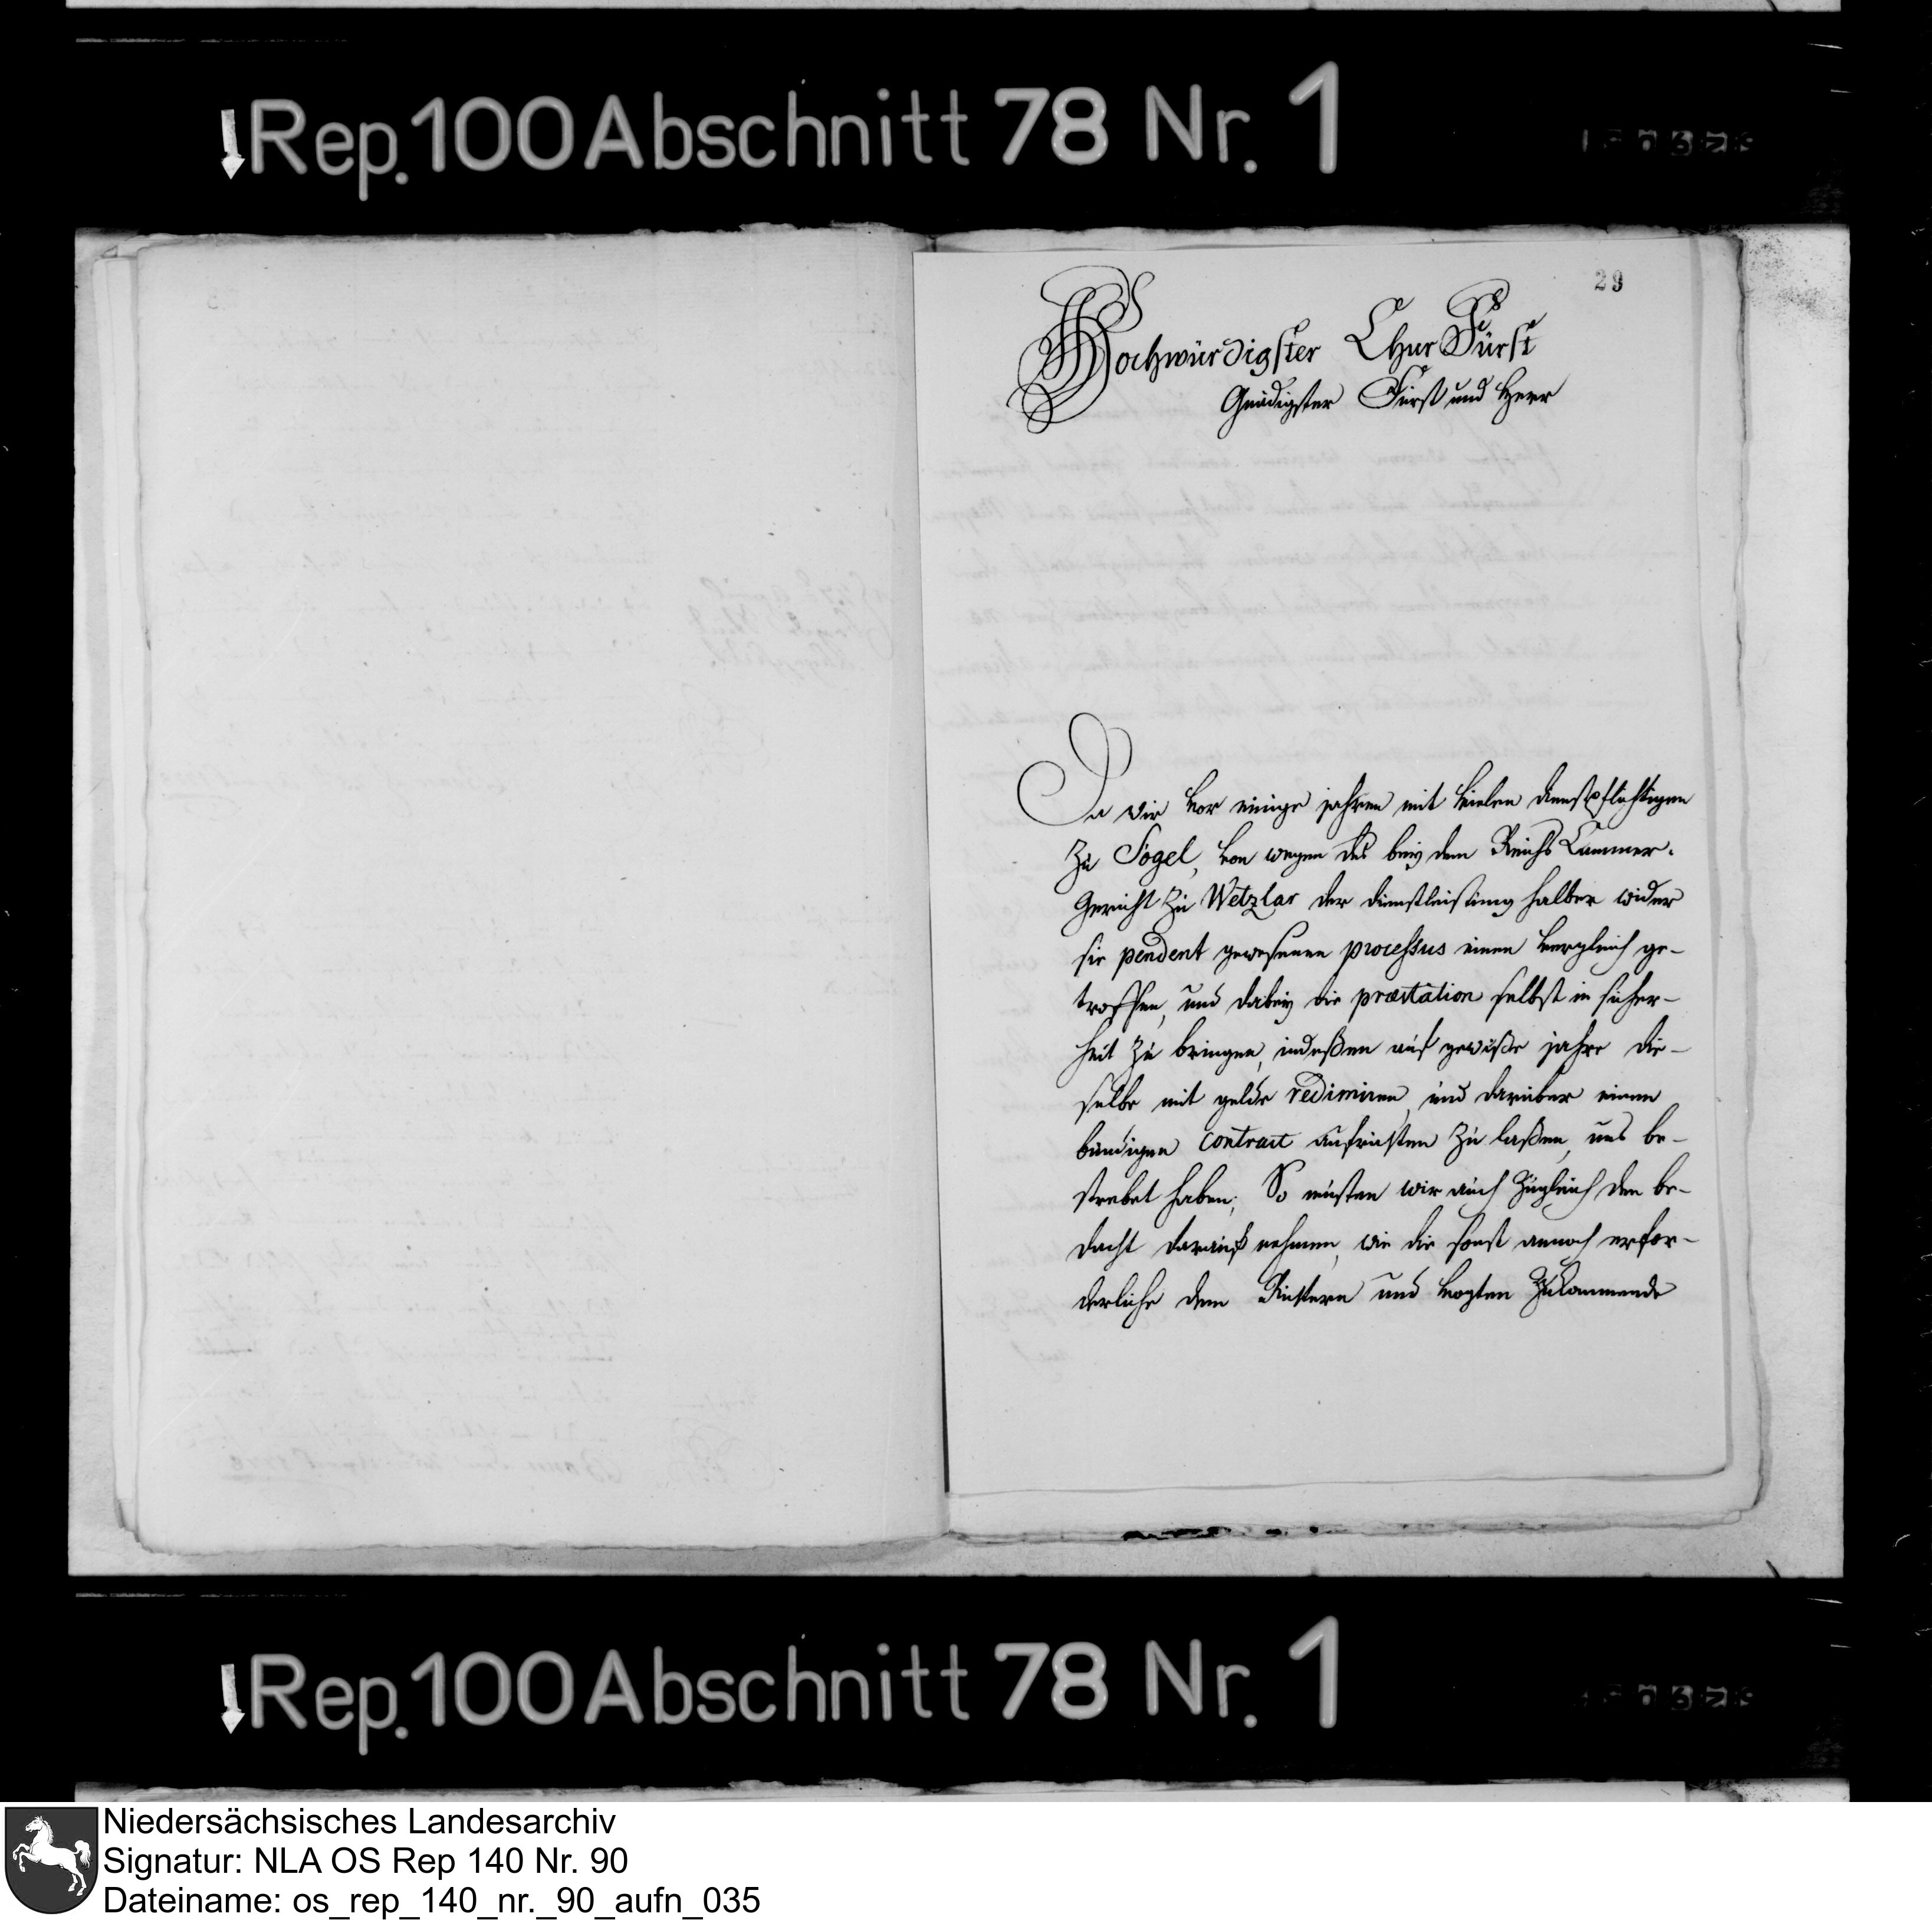 Rep. 100 Abschnitt 78 Nr. 1
29
Hochwürdigster ChurFürst
Gnädigster Fürst und Herr
Da wir vor einige jahren mit vielen dienstpflichtigen
zu Sögel, von wegen des beÿ dem Reichs Cammer-
Gericht zu Wetzlar der dienstleistung halber wider
sie pendent gewesenen processus einen vergleich ge-
troffen, und dabeÿ die præstation selbst in sicher-
heit zu bringen, indeßen auf gewiße jahre die-
selbe mit gelde redimiren, und darüber einen
bündigen contract aufrichten zu laßen, uns be-
strebet haben; So müsten wir auch zugleich den be-
dacht darauf nehmen, wie die sonst annoch erfor-
derliche dem Richtern und Vogten zukommende
Rep. 100 Abschnitt 78 Nr. 1
Niedersächsisches Landesarchiv
Signatur: NLA OS Rep 140 Nr. 90
Dateiname: os_rep_140_nr._90_aufn_035